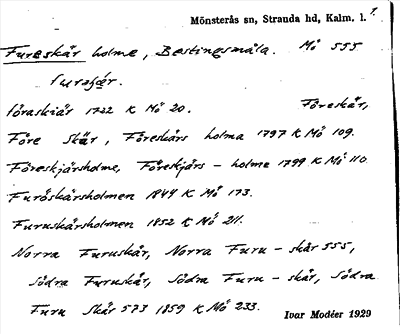 Mönsterås sn, Stranda hd, Kalm. l. 1.
Fureskär holme, Bestingsmåla. Mö 555
furaskär.
föraskiär 1722 K Mö 20. Föreskär,
Före Skär, Föreskärs holma 1797 K Mö 109.
Föreskjärsholme, Föreskjärs - holme 1799 K Mö 110
Furöskärsholmen 1844 K Mö 173.
Furuskärsholmen 1852 K Mö 211.
Norra Furuskär, Norra Furu - skär 555,
Södra Furuskär, Södra Furu - skär, Södra
Furu Skär 573 1859 K Mö 233.
Ivar Modéer 1929